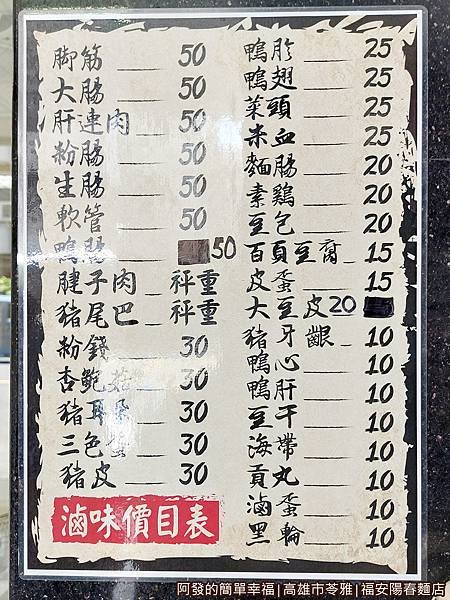 脚筋 50
大腸 50
肝連肉 50
粉腸 50
生腸 50
軟管 50
鴨腸 50
腱子肉 秤重
豬尾巴 秤重
粉錢 30
杏鮑菇 30
豬耳朵 30
三色蛋 30
豬皮 30
滷味價目表
鴨胗 25
鴨翅 25
菜頭 25
米血 25
麵腸 20
素鷄 20
豆包 20
百頁豆腐 15
皮蛋 15
大豆皮20
豬牙齦 10
鴨心 10
鴨肝 10
豆干 10
海帶 10
貢丸 10
滷蛋 10
黑輪 10
阿發的簡單幸福|高雄市苓雅|福安陽春麵店